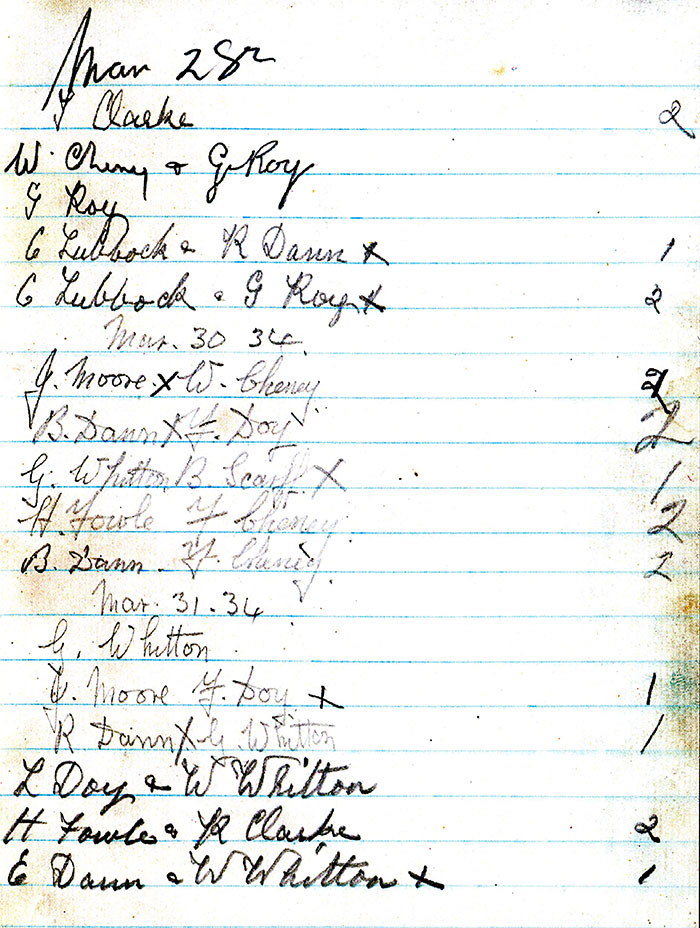 Mar 28th
F Clarke 2
W. Cheney & G Roy
G Roy
C Lubbock & R Dann x 1
C Lubbock & G Roy x 2
Mar. 30 34
J. Moore x W. Cheney 2
B. Dann x F. Doy 2
G. Whitton B. Scarf. x 1
H. Fowle F Cheney 2
B. Dann. F. Cheney 2
Mar. 31. 34
G. Whitton
Moore F. Doy x 1
R Dann x G Whitton 1
L Doy & W Whitton
H Fowle & R Clarke 2
E Dann & W Whitton x 1